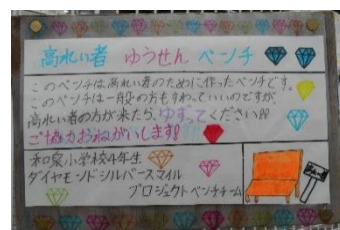 高れい者 ゆうせん ベンチ
このベンチは、高れい者のために作ったベンチです。
このベンチは一般の方もすわっていいのですが、
高れい者の方が来たら、ゆずってください!!
ご協力おねがいします!!
小学校4年生
ダイヤモンドシルバースマイル
プロジェクトベンチチーム